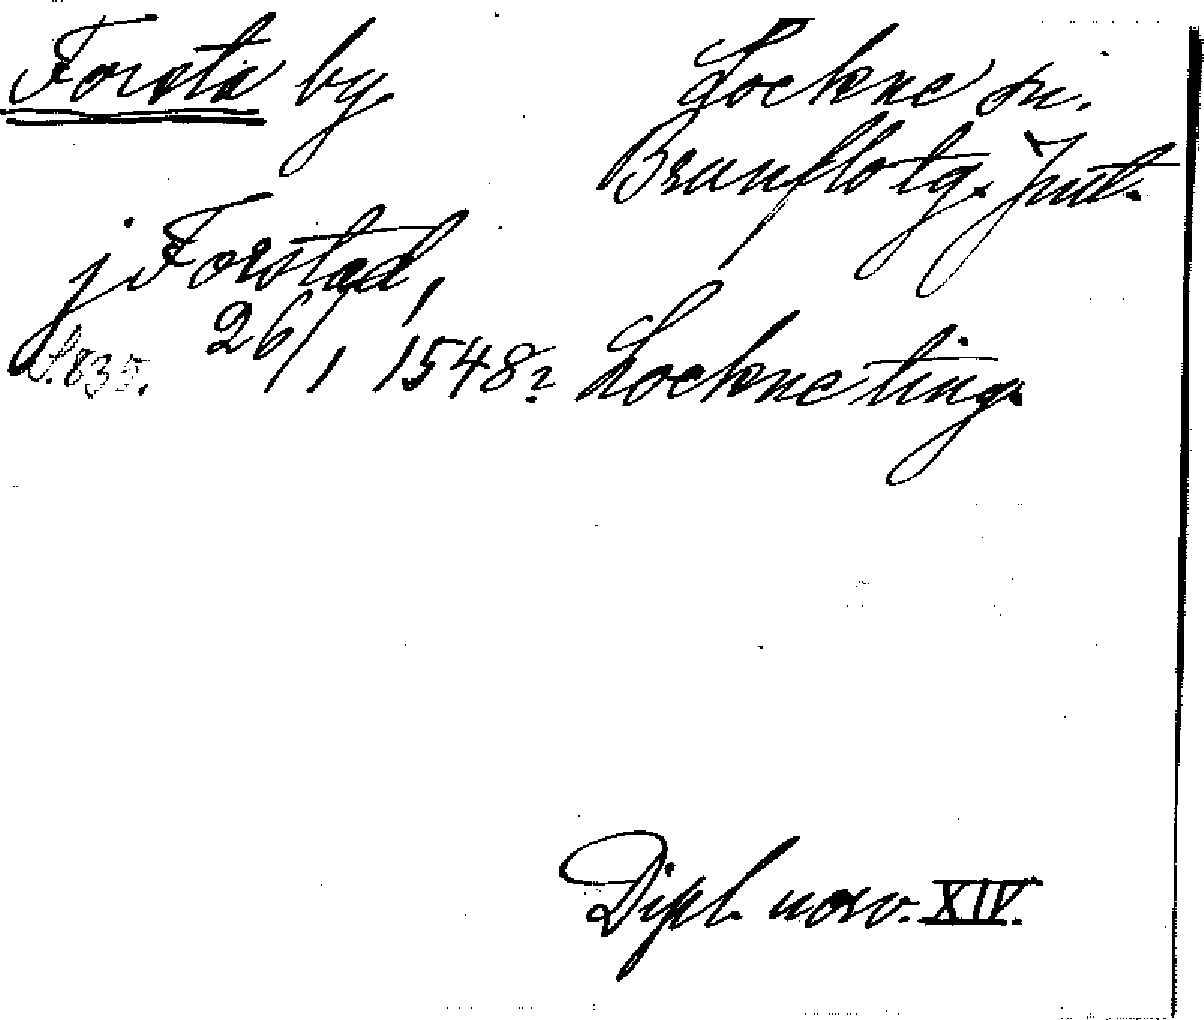 Forsta by
Lockne sn.
Brunflo tg. Jmt.
j Forstad,
S. 835. 26/1 1548, Lockne ting.
Dipl. norv. XIV.